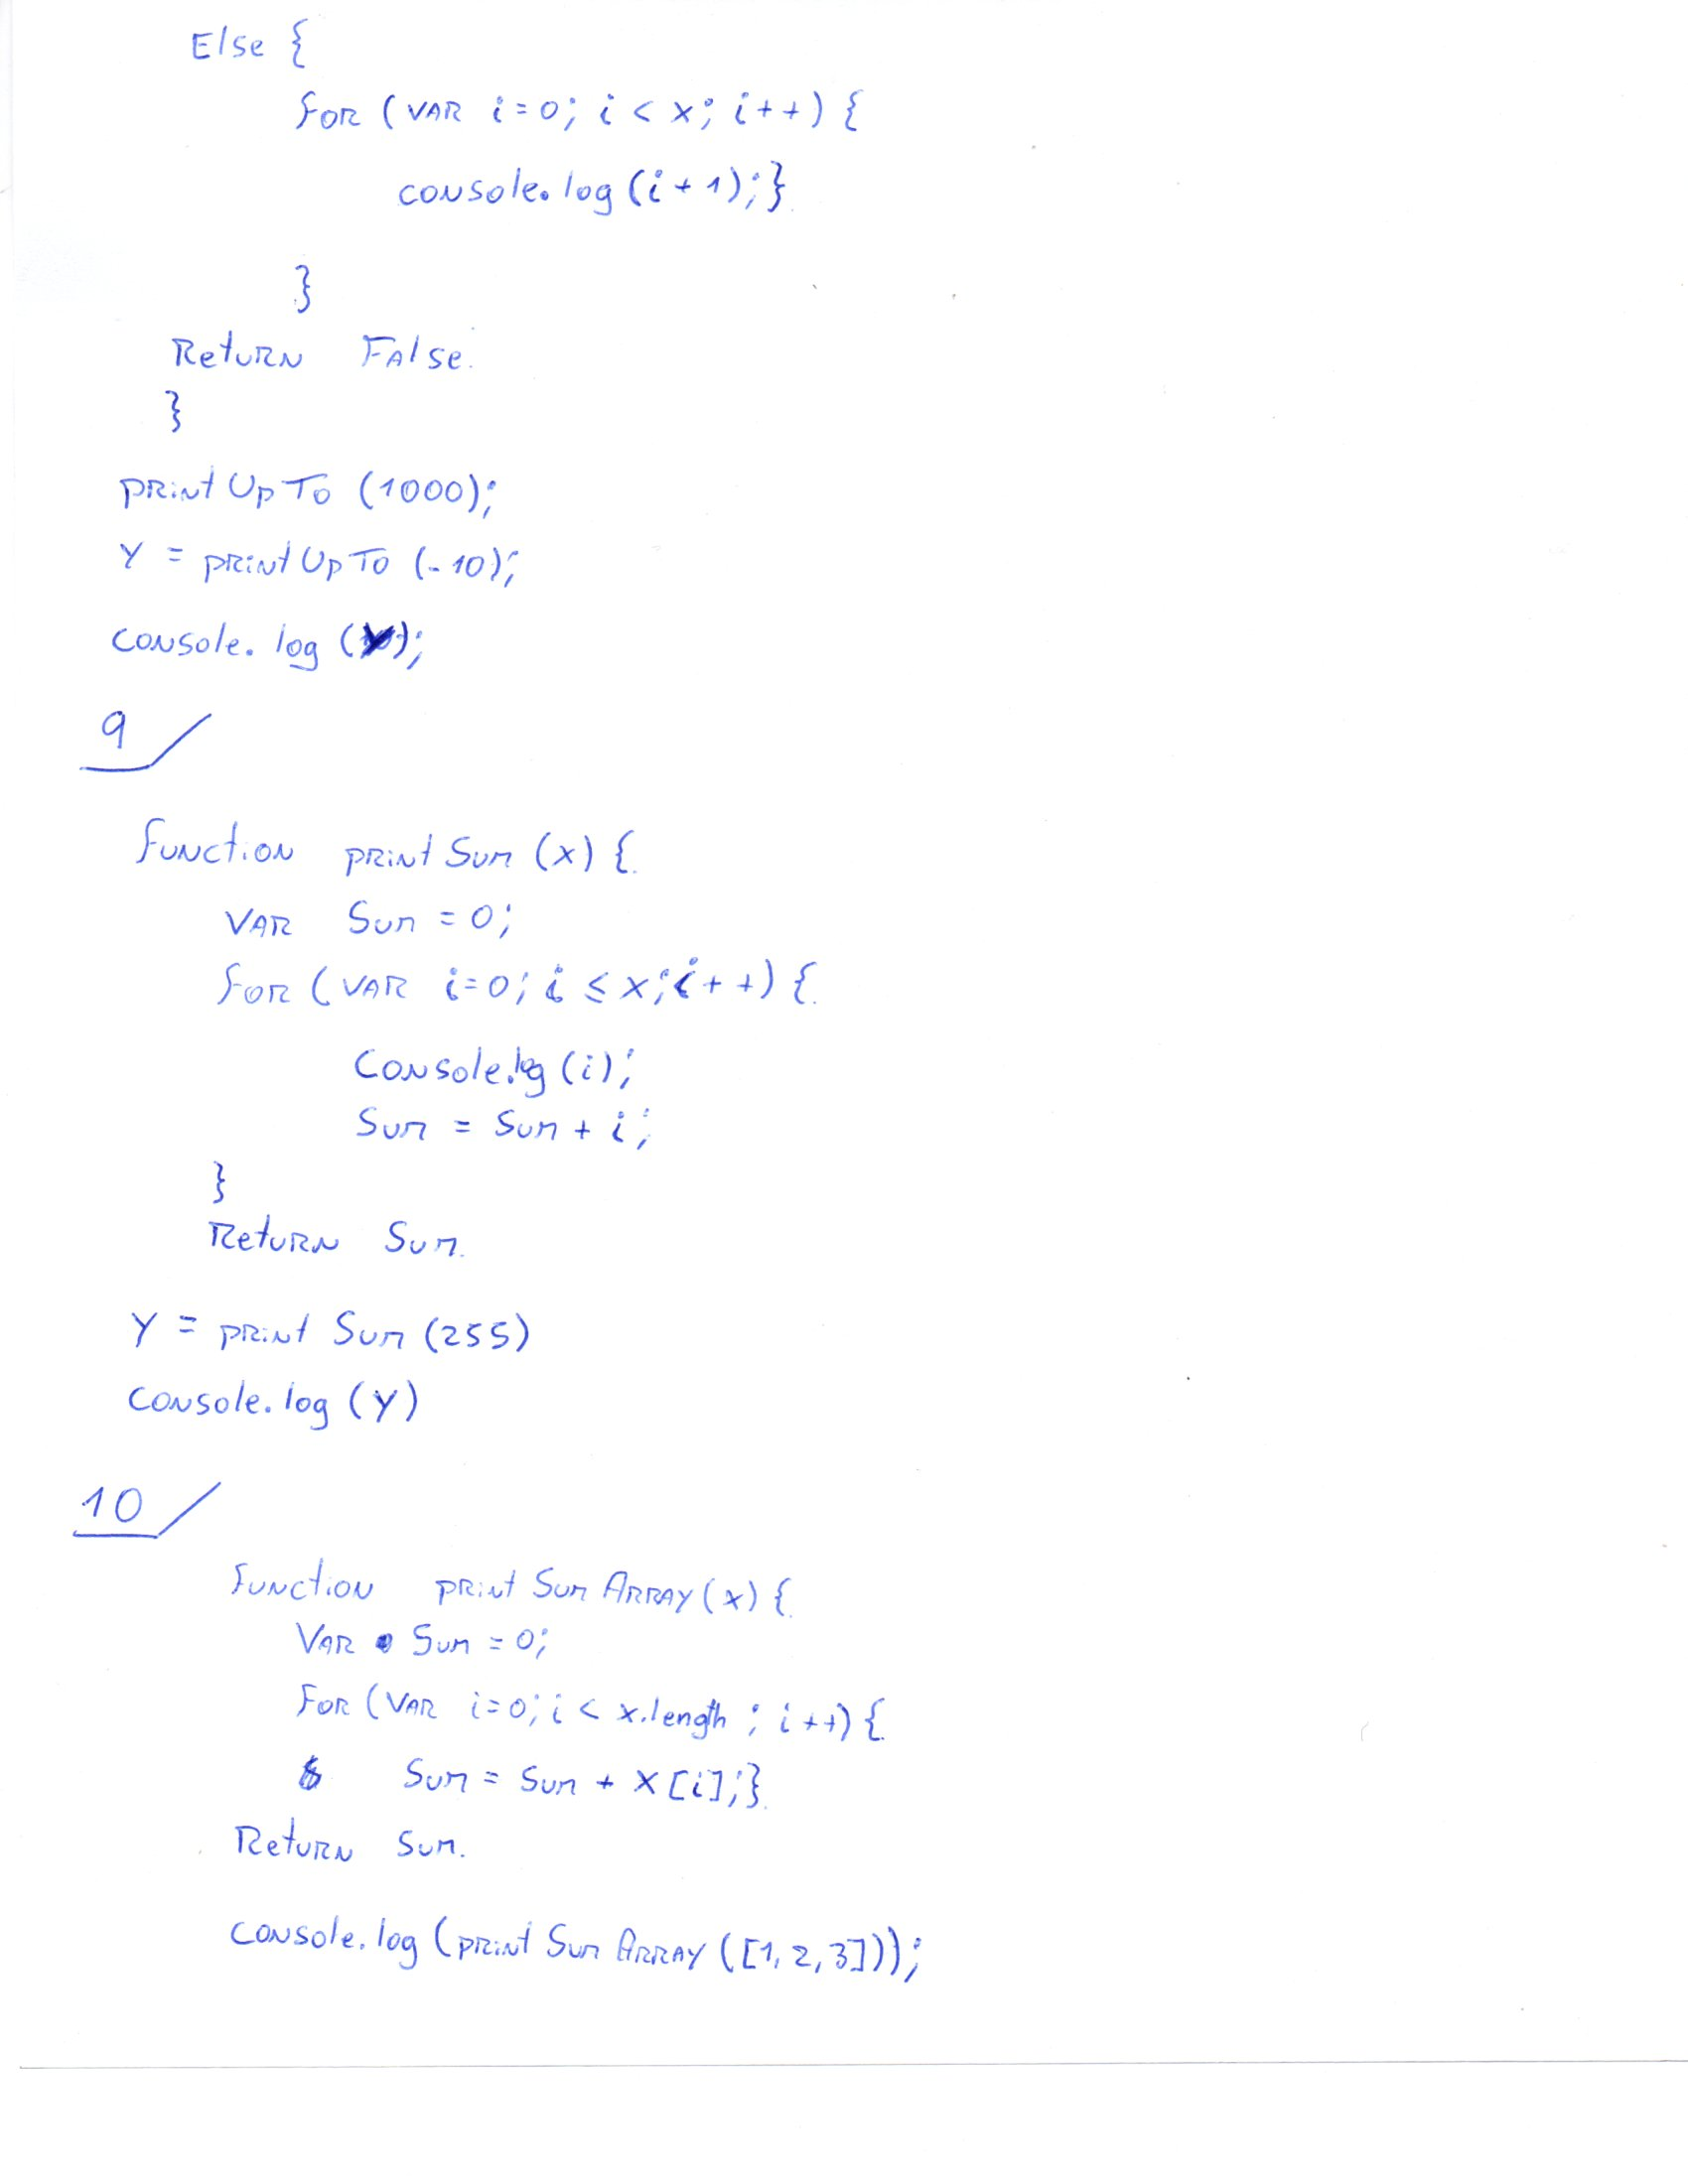 Else {
for (var i=0; i < x; i++) {
console.log (i+1);}
}
Return False.
}
printUpTo (1000);
Y = printUpTo (-10);
console.log (Y);
9
function printSum (x) {
var Sum = 0;
for (var i=0; i ≤ x; i++) {
Console.log (i);
Sum = Sum + i;
}
Return Sum.
Y = print Sum (255)
console.log (Y)
10
function print Sum Array (x) {
Var Sum = 0;
For (Var i=0; i < x.length ; i++) {
Sum = Sum + X[i];}
Return Sum.
console.log (print Sum Array ([1, 2, 3]));